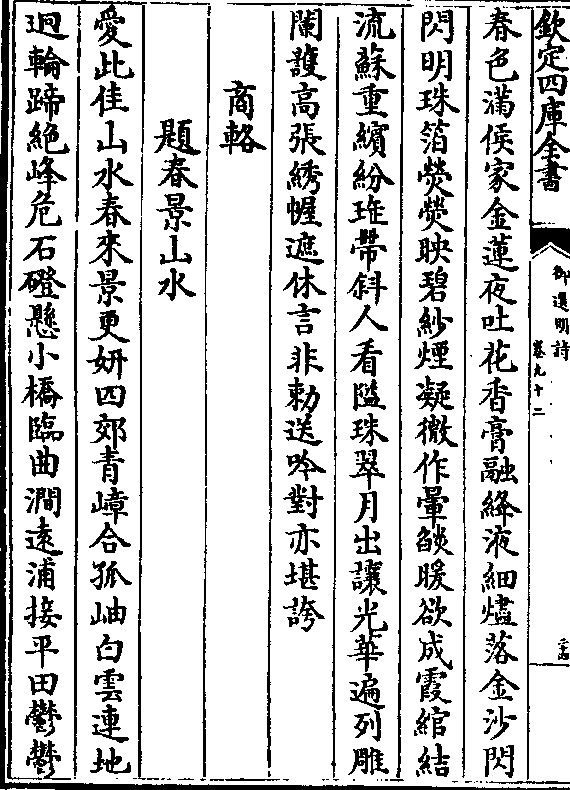 欽定四庫全書
御選明詩
卷九十二
春色滿侯家金蓮夜吐花香膏融絳液細燼落金沙閃
閃明珠箔熒熒映碧紗煙凝微作暈燄暖欲成霞綰結
流蘇重繽紛璀帶斜人看隘珠翠月出讓光華遍列雕
闌護高張綉幄遮休言非勅送吟對亦堪誇
商輅
題春景山水
愛此佳山水春來景更妍四郊青嶂合孤岫白雲連地
迥輪蹄絕峰危石磴懸小橋臨曲澗遠浦接平田鬱鬱